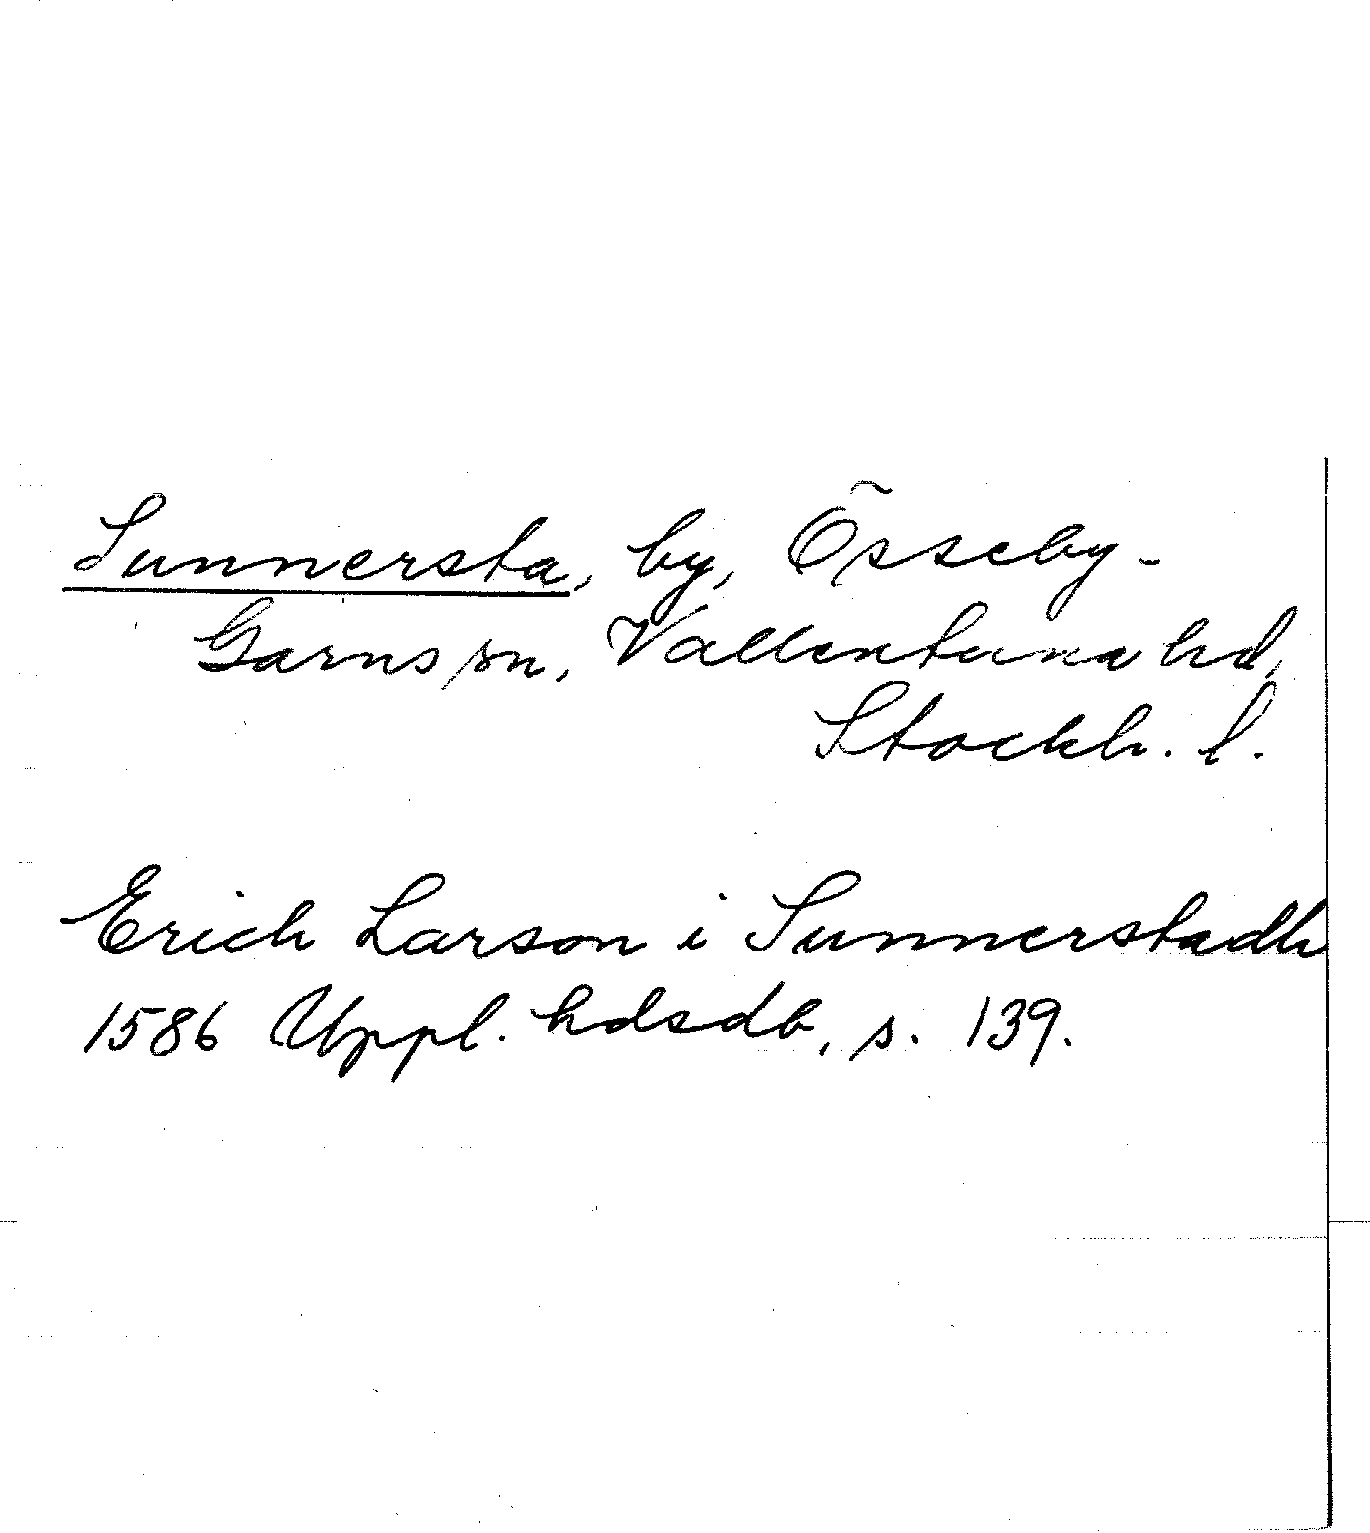 Sunnersta, by, Össeby-
Garns sn, Vallentuna hd,
Stockh. l.
Erich Larson i Sunnerstadh
1586 Uppl. hdsdb, s. 139.